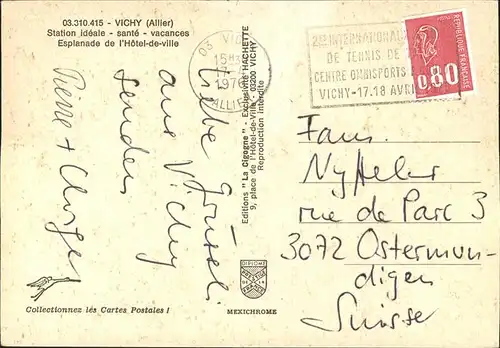 03.310.415 - VICHY (Allier)
Station idéale - santé - vacances
Esplanade de l'Hôtel-de-ville
Liebe Grüsse
aus Vichy
senden
Pierre +
Editions "La Cigogne" - Exclusivité HACHETTE
9, place de l'Hôtel-de-Ville - 03200 VICHY
Reproduction interdite
03 VICHY
15H
1976
ALLIER
INTERNATIONAL
DE TENNIS DE
CENTRE OMNISPORTS
VICHY-17.18 AVRIL
0,80
Fam.
Nyffeler
rue de Parc 3
3072 Ostermun-
digen
Suisse
DIPLOME
PRESTIGE
Collectionnez les Cartes Postales !
MEXICHROME